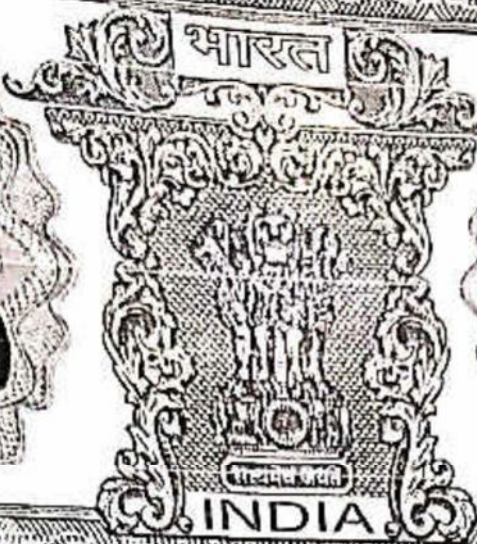 भारत
सत्यमेव जयते
INDIA